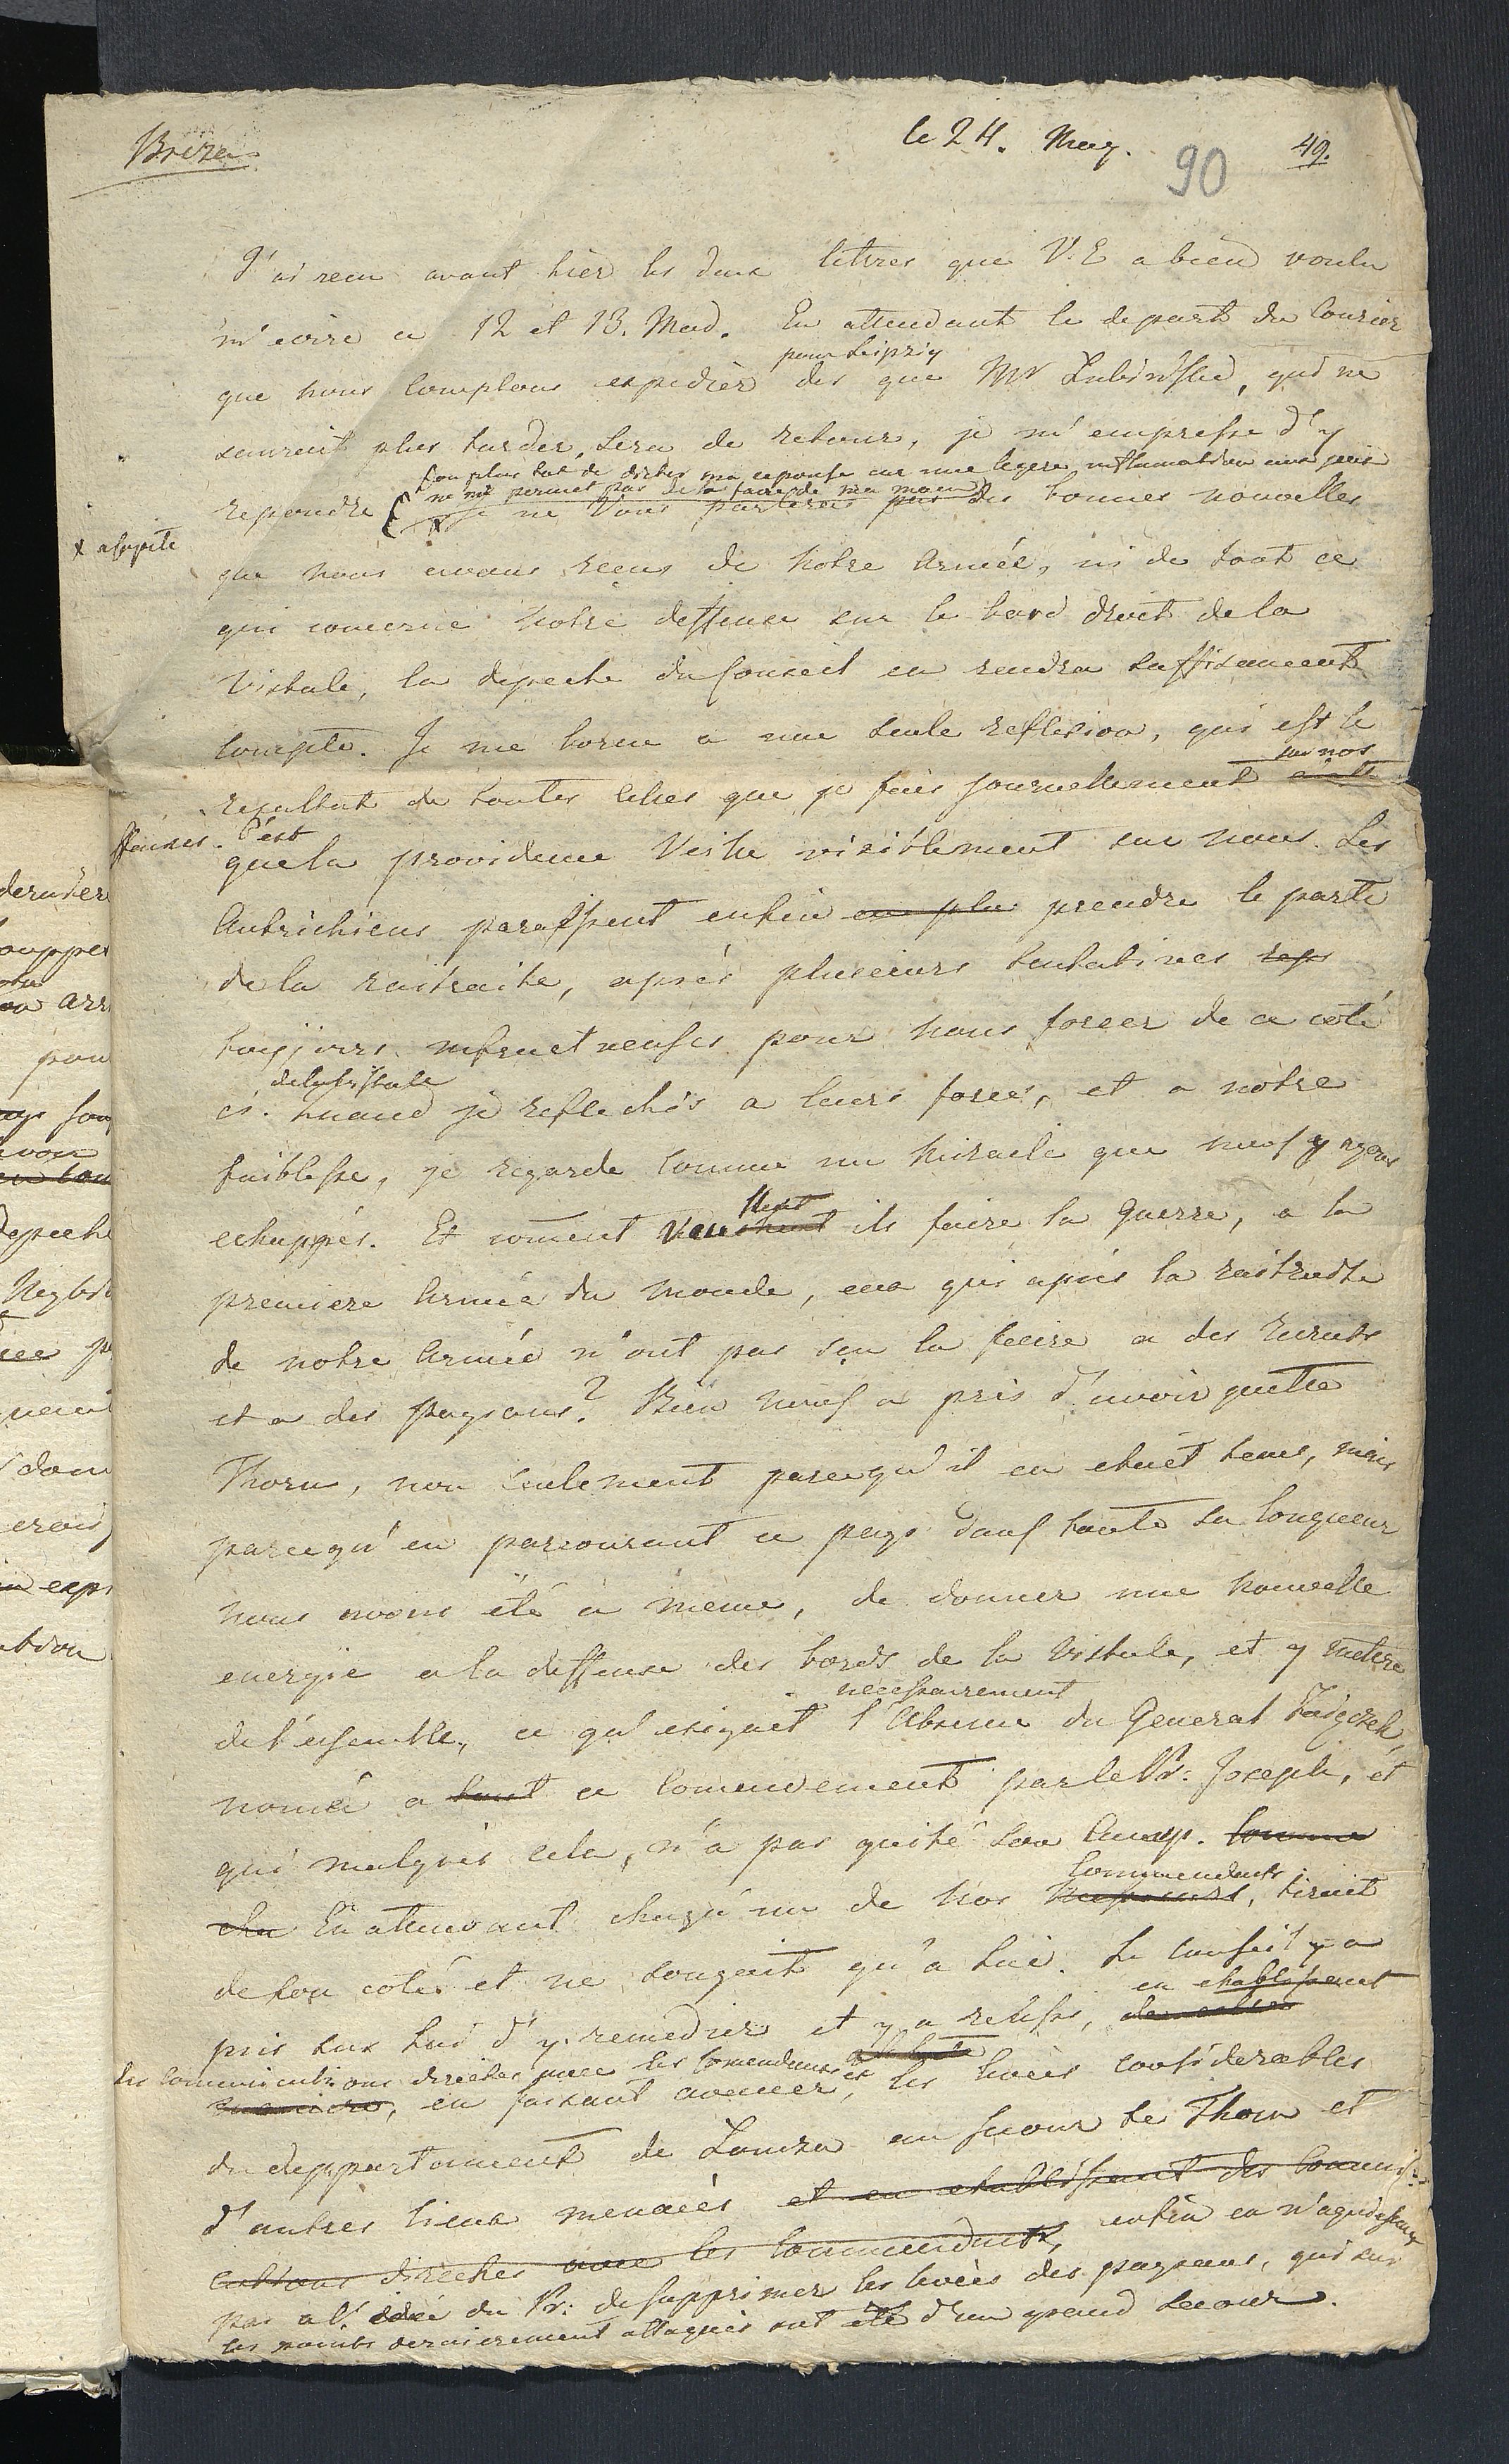 Breza
le 24. May.
90
49.
J'ai reçu avant hier les deux lettres que V.E a bien voulu
m'ecrire ce 12 et 13. Mad. En attendant le depart du Courier
pour Leipzig
que nous comptons expedier des que Mr Lubiński, qui ne
saurait plus tarder, sera de retour, je m'empresse d'y
ou plus tot de dicter ma reponse car une legere inflamation aux yeux
ne me permet pas de la faire de ma main
repondre je ne Vous parlerai pas des bonnes nouvelles
que nous avons reçus de notre Armée, ni de tout ce
qui concerne notre deffense sur le bord droit de la
Vistule, la depeche du Conseil en rendra suffisamment
compte. Je me borne a une seule reflexion, qui est le
sur nos
resultat de toutes celles que je fais journellement
affaires. C'est
que la providence Veille visiblement sur nous. Les
Autrichiens paraissent enfin prendre le parti
de la raitraite, aprés plusieurs tentatives
toujours infructueuses pour nous forcer de ce coté
de la Vistule
ci. Quand je reflechis a leurs forces, et a notre
faiblesse, je regarde comme un miracle que nous y ayons
echappés. Et coment Veulent ils faire la Guerre, a la
premiere Armée du monde, eux qui aprés la raitraite
de notre Armée n'ont pas seu la faire a des recruts
et a des paysans? Bien nous a pris d'avoir quitté
Thorn, non seulement parcequ'il en etait tems, mais
parcequ'en parcourant ce pays dans toute sa longueur
nous avons été a meme, de donner une nouvelle
energie a la deffense des bords de la Vistule, et y mettre
necessairement
de l'ensemble, ce qu'exigait l'Absence du General Zaigczek,
nomé a tout ce Comendement par le Pr: Joseph, et
qui malgrés cela, n'a pas quité son Camp.
Commendants
En attendant chaqu'un de nos tirait
de son coté et ne songait qu'a lui. Le Conseil y a
en etablissant
pris sur lui d'y remedier et y a reussi,
des Communications directes avec les Comendants et
en faisant avancer, les levées considerables
du deppartement de Lomza au secour de Thorn et
d'autres lieux menacés et en etablissant des Communi-
cations directes avec les Commendants, enfin en n'aquiesçant
pas a l'idée du Pr: de supprimer les levées des paysans, qui sur
les points dernierement attaqués ont eté d'un grand secour.